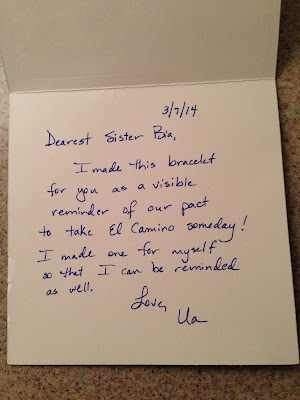 3/7/14
Dearest Sister Bia,
I made this bracelet
for you as a visible
reminder of our pact
to take El Camino someday!
I made one for myself
so that I can be reminded
as well.
Love,
Ua